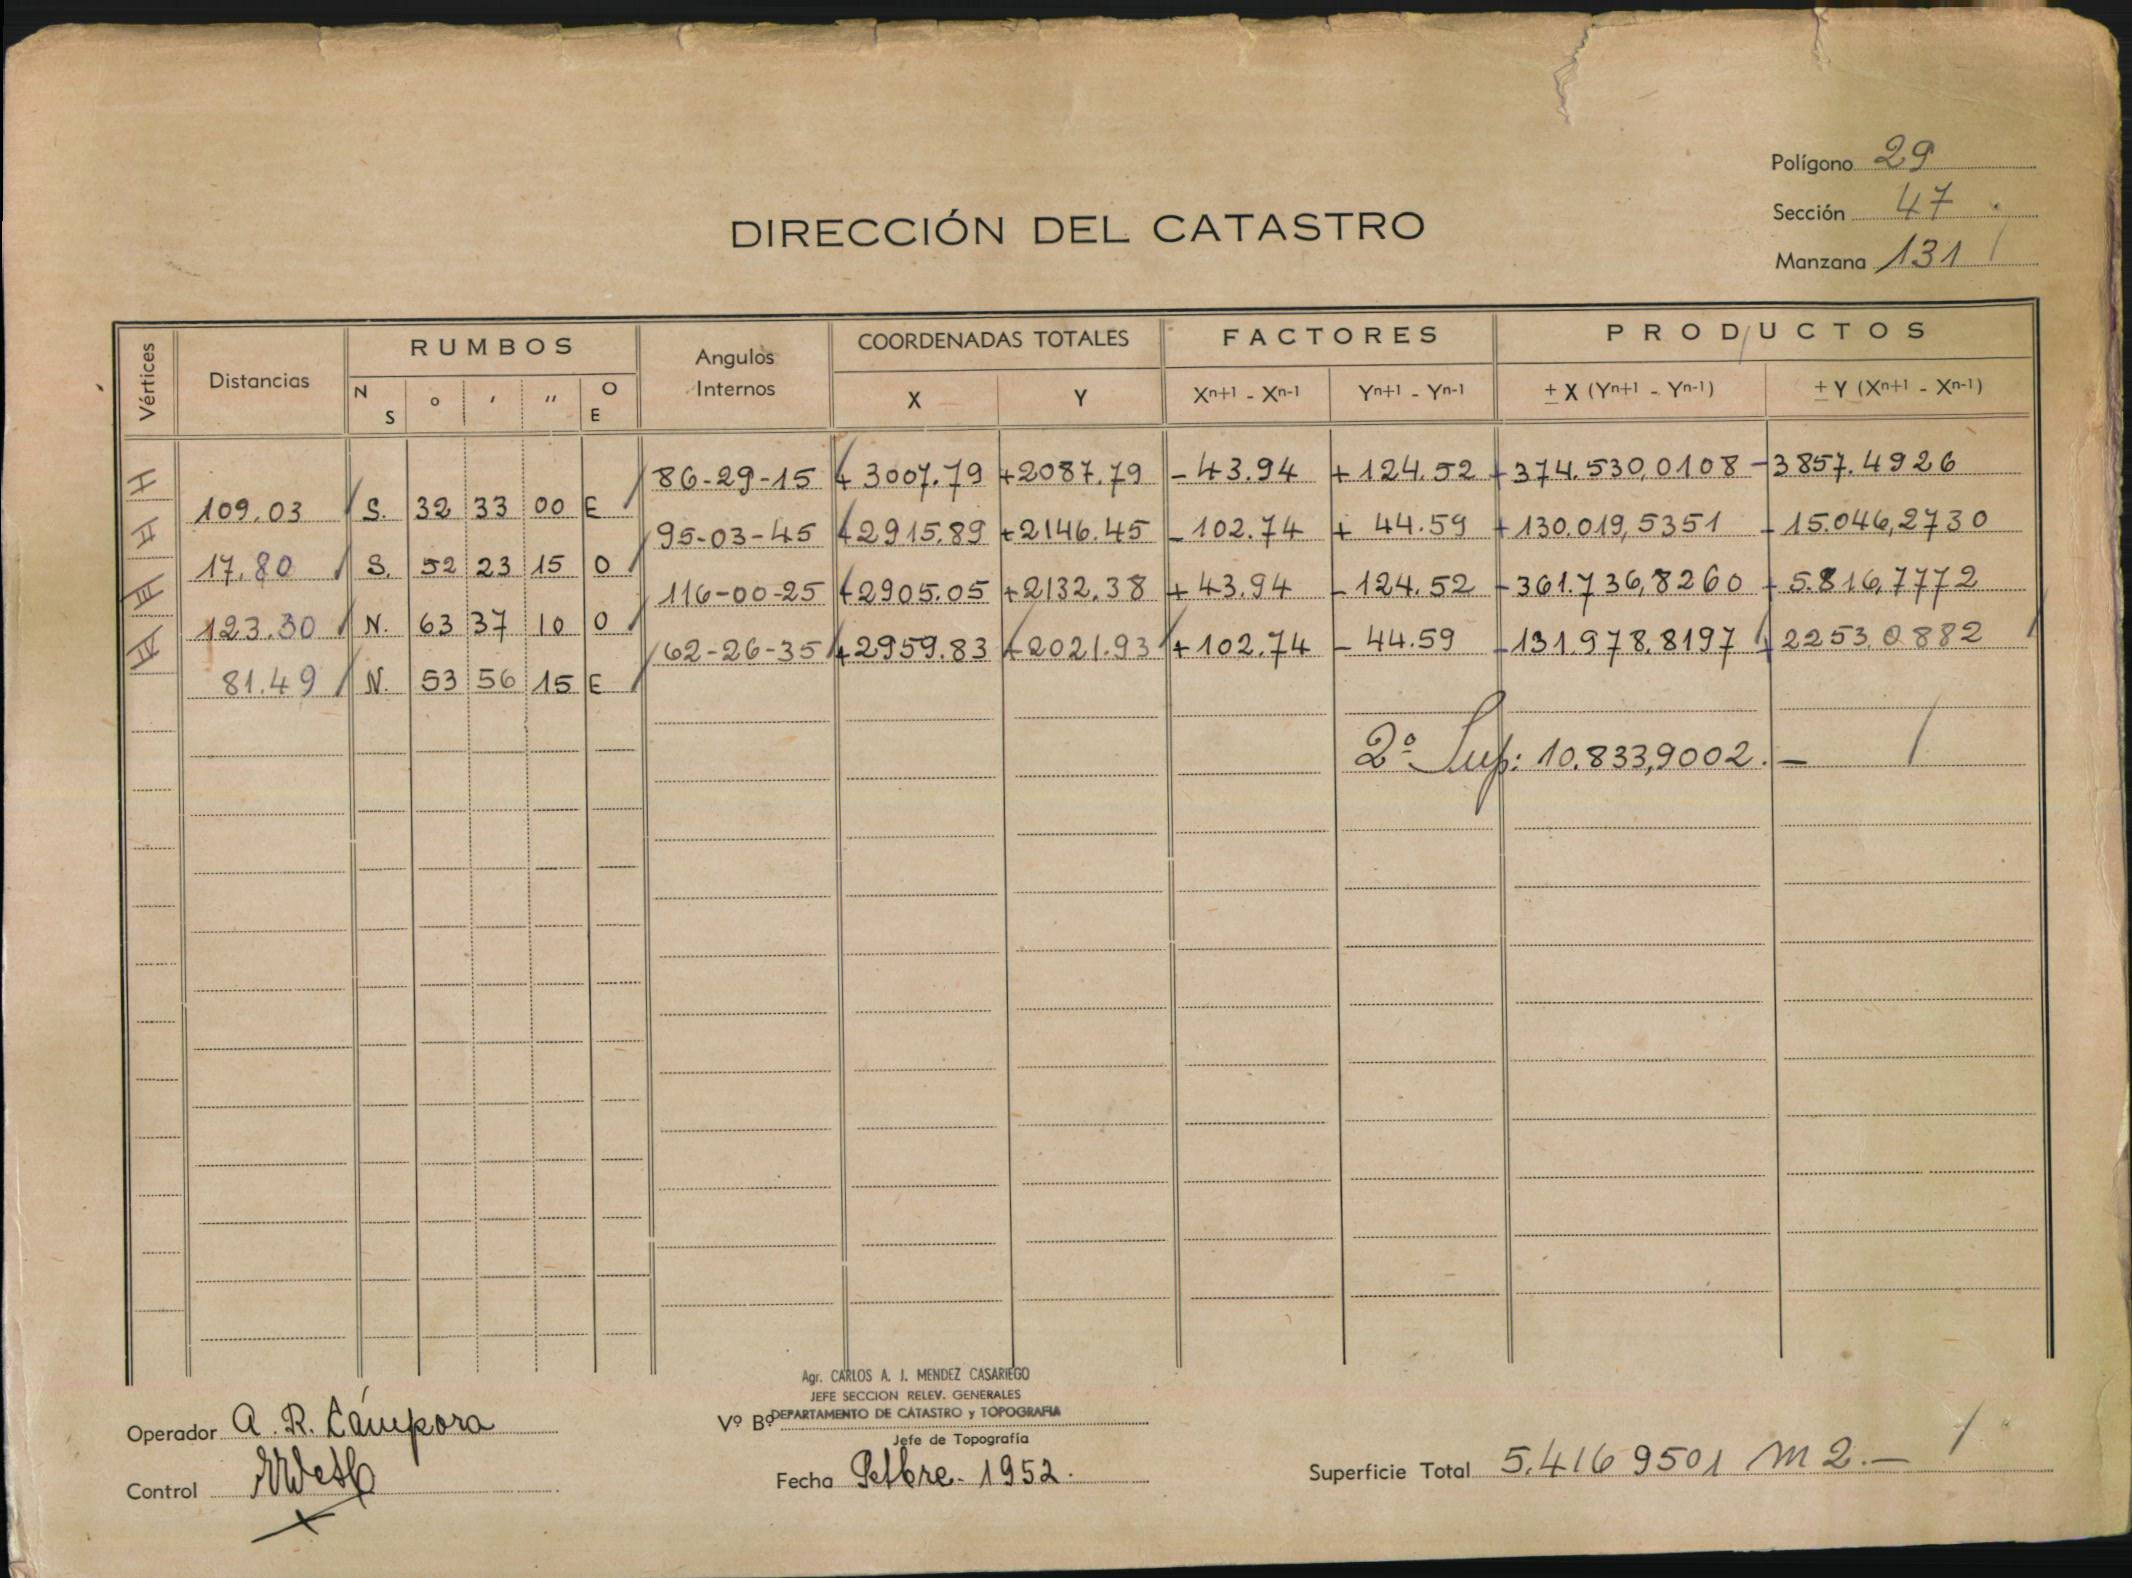 Polígono 29
Sección 47
Manzana 131
DIRECCIÓN DEL CATASTRO
Vértices Distancias RUMBOS Angulos Internos COORDENADAS TOTALES FACTORES PRODUCTOS
N S º ' '' O E X Y Xn+1 - Xn-1 Yn+1 - Yn-1 ± X (Yn+1 - Yn-1) ± Y (Xn+1 - Xn-1)
I 86-29-15 + 3007.79 +2087.79 - 43.94 + 124.52 + 374.530,0108 - 3857.4926
109.03 S. 32 33 00 E
II 95-03-45 +2915.89 +2146.45 - 102.74 + 44.59 + 130.019,5351 - 15.046,2730
17.80 S. 52 23 15 O
III 116-00-25 +2905.05 +2132.38 + 43.94 - 124.52 - 361.736,8260 + 5.816,7772
123.30 N. 63 37 10 O
IV 62-26-35 +2959.83 +2021.93 + 102.74 - 44.59 - 131.978.8197 + 2253.0882
81.49 N. 53 56 15 E
2º Sup: 10.833,9002.-
Agr. CARLOS A. J. MENDEZ CASARIEGO
JEFE SECCION RELEV. GENERALES
DEPARTAMENTO DE CATASTRO y TOPOGRAFIA
Operador A. R. Cámpora
Vº Bº
Jefe de Topografía
Control
Fecha Setbre. 1952.
Superficie Total 5.416 9501 m2.-